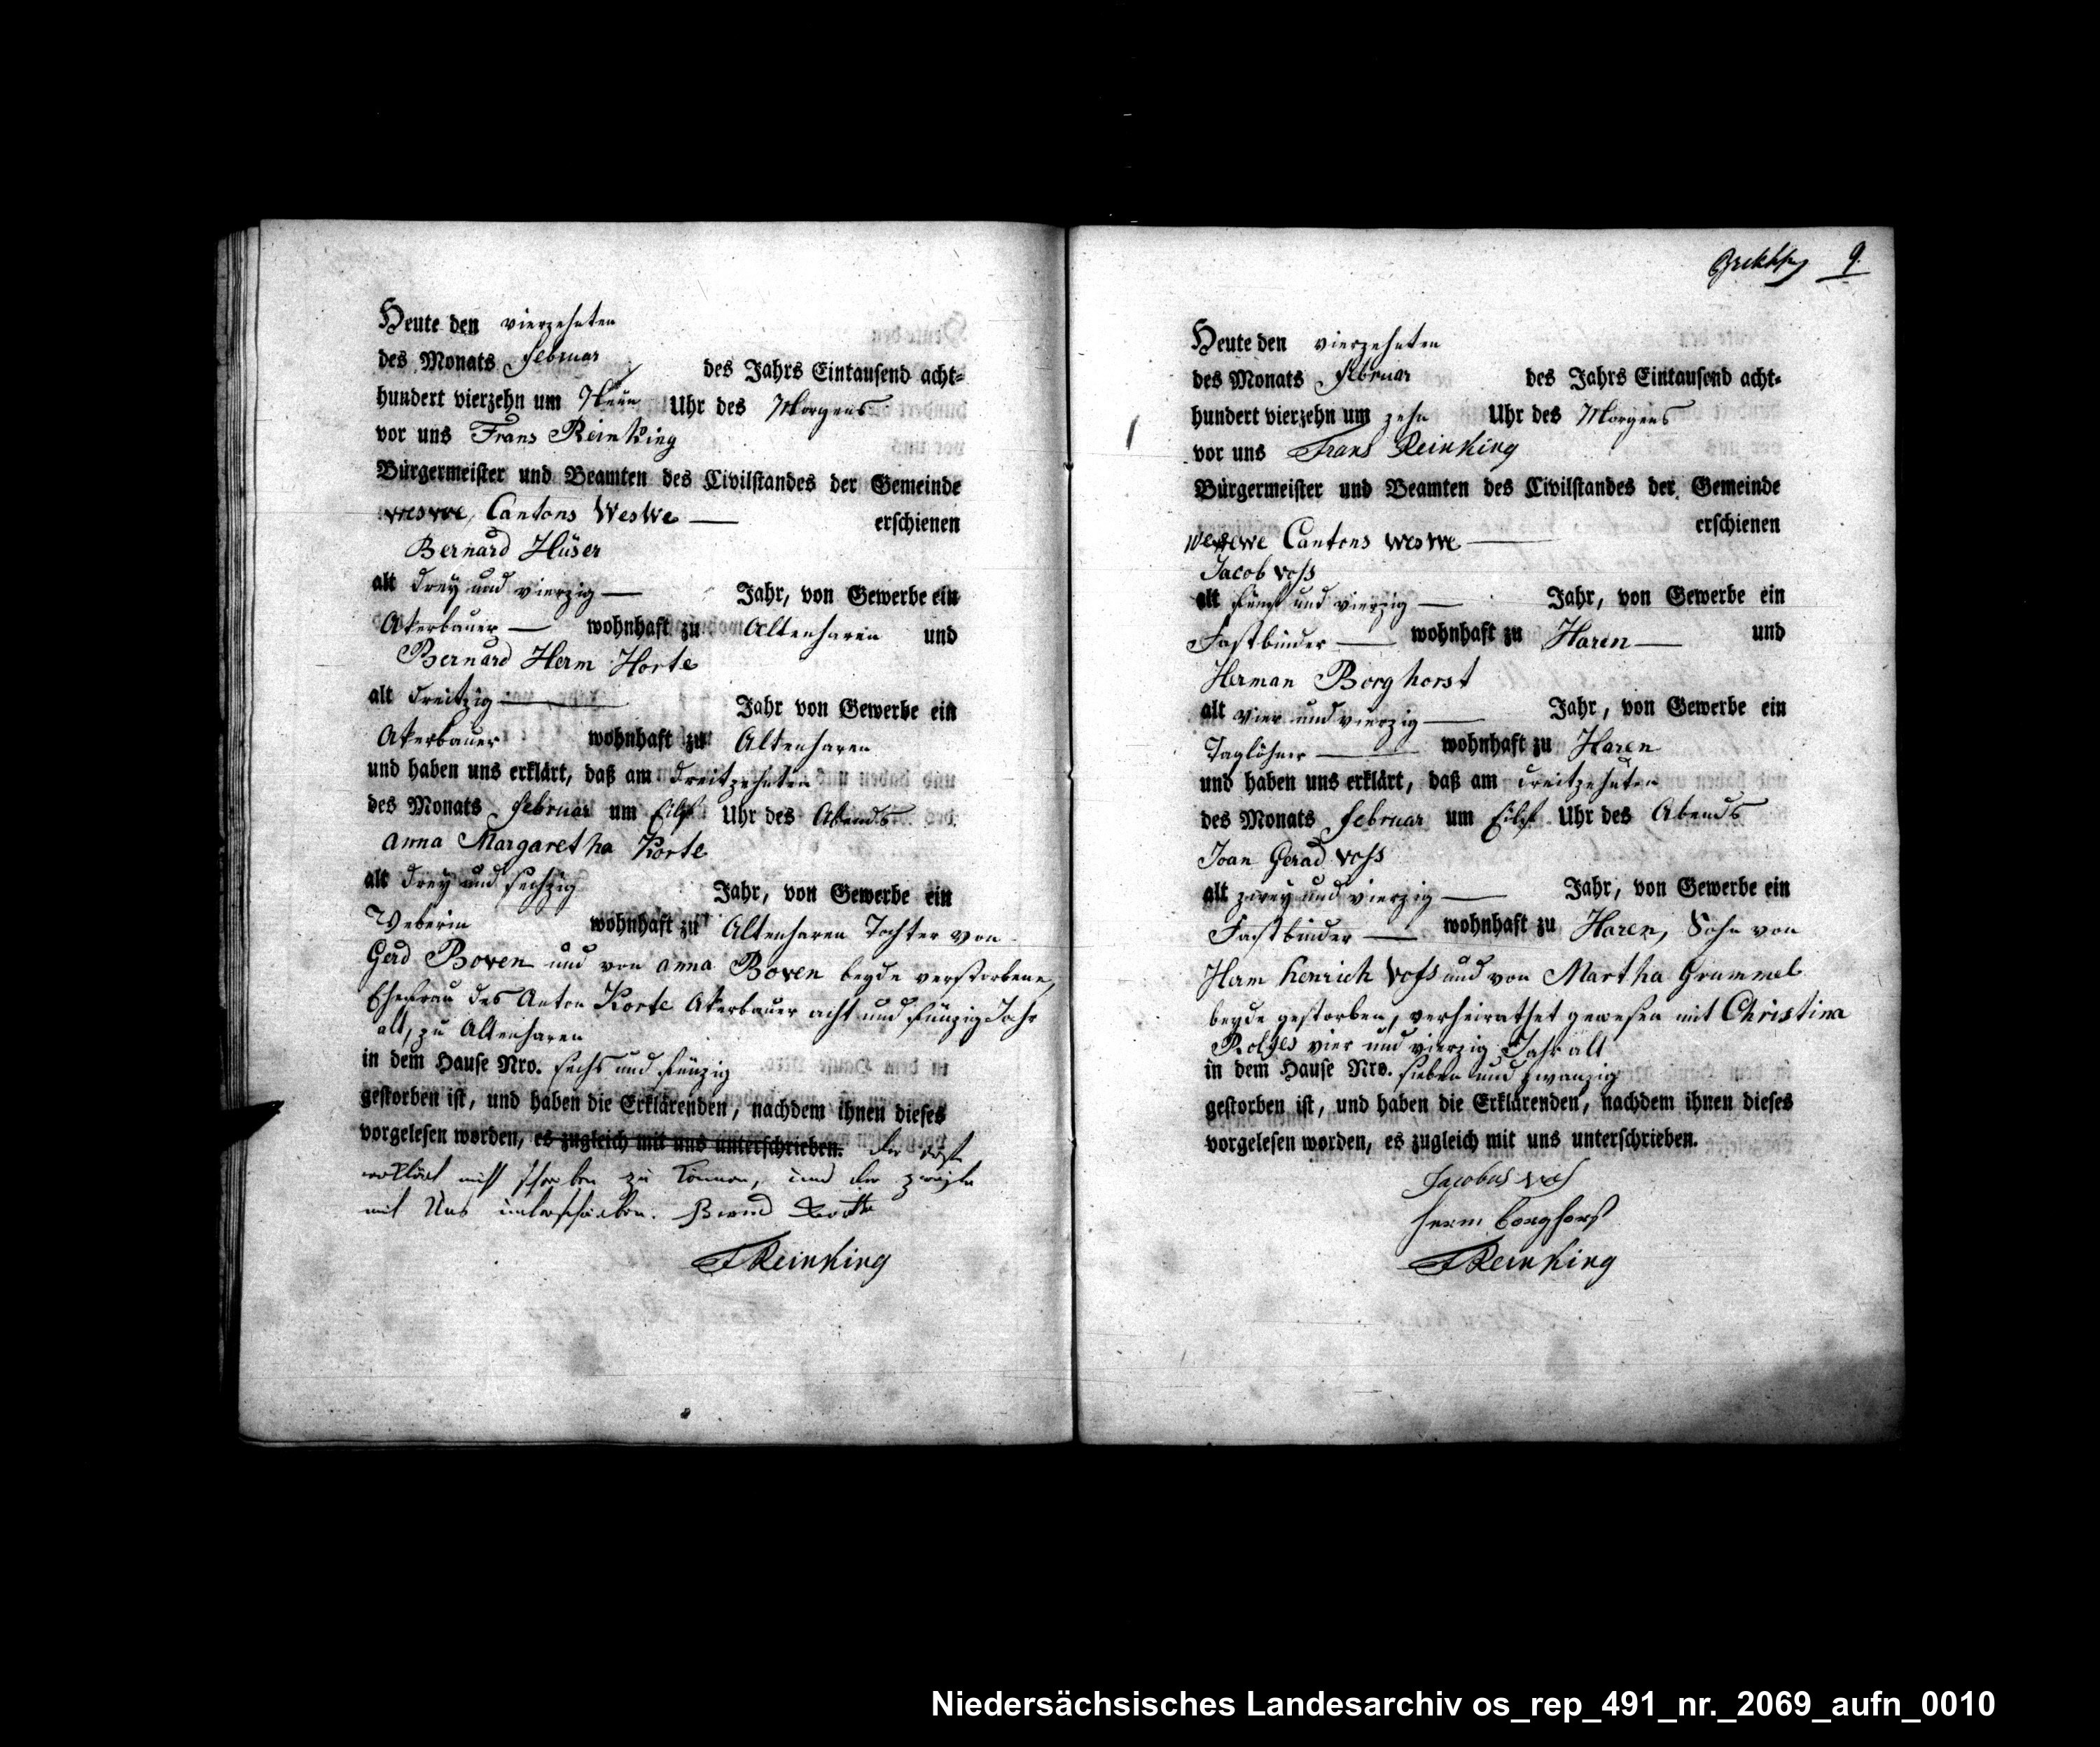 Heute den vierzehnten
des Monats Februar des Jahrs Eintausend acht-
hundert vierzehn um Neun Uhr des Morgens
vor uns Frans Reinking
Bürgermeister und Beamten des Civilstandes der Gemeinde
Weswe, Cantons Weswe — erschienen
Bernard Hüser
alt drey und vierzig — Jahr, von Gewerbe ein
Akerbauer — wohnhaft zu Altenharen und
Bernard Herm Horte
alt dreitzig — Jahr von Gewerbe ein
Akerbauer wohnhaft zu Altenharen
und haben uns erklärt, daß am dreitzehnten
des Monats Februar um Eilf Uhr des Abends
anna Margaretha Korte
alt drey und sechzig Jahr, von Gewerbe ein
Weberin wohnhaft zu Altenharen Tochter von
Gerd Boven und von anna Boven beyde verstorbene,
Ehefrau des Anton Korte Akerbauer acht und fünzig Jahr
alt, zu Altenharen
in dem Hause Nro. sechs und fünzig
gestorben ist, und haben die Erklärenden, nachdem ihnen dieses
vorgelesen worden, es zugleich mit uns unterschrieben. der erste
erklärt nicht schreiben zu können, und der zweite
mit Uns unterschrieben. Bernd
FReinking
9.
Heute den vierzehnten
des Monats Februar des Jahrs Eintausend acht-
hundert vierzehn um zehn Uhr des Morgens
vor uns Frans Reinking
Bürgermeister und Beamten des Civilstandes der Gemeinde
Wesewe Cantons Weswe — erschienen
Jacob Voss
alt fünf und vierzig — Jahr, von Gewerbe ein
Fastbinder — wohnhaft zu Haren — und
Herman Borghorst
alt vier und vierzig — Jahr, von Gewerbe ein
Taglöhner — wohnhaft zu Haren
und haben uns erklärt, daß am dreitzehnten
des Monats Februar um Eilf Uhr des Abends
Joan Gerad Voss
alt zwey und vierzig — Jahr, von Gewerbe ein
Fastbinder — wohnhaft zu Haren, Sohn von
Herm Henrich Voss und von Martha Grummel
beyde gestorben, verheirathet gewesen mit Christina
Rolfes vier und vierzig Jahr alt
in dem Hause Nro. sieben und zwanzig
gestorben ist, und haben die Erklärenden, nachdem ihnen dieses
vorgelesen worden, es zugleich mit uns unterschrieben.
Jacobus vos
herm borghorst
FReinking
Niedersächsisches Landesarchiv os_rep_491_nr._2069_aufn_0010